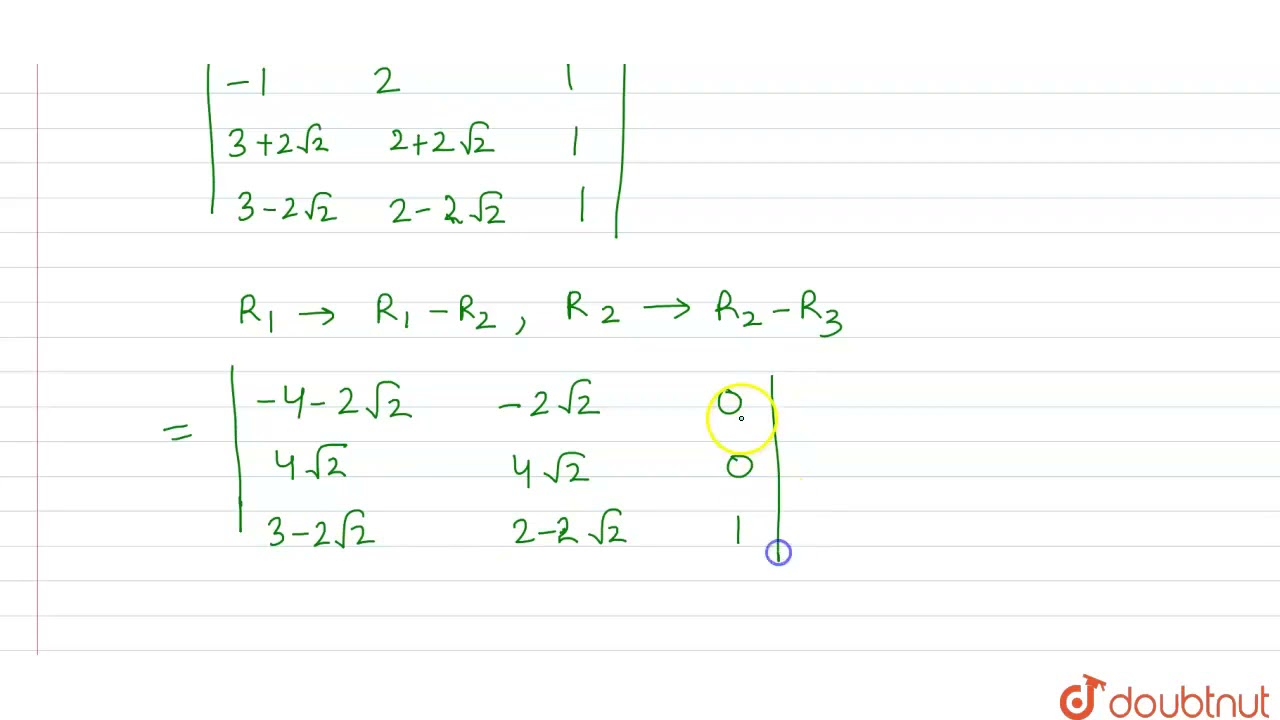 | -1 2 1 |
| 3+2√2 2+2√2 1 |
| 3-2√2 2-2√2 1 |
R₁ → R₁ - R₂ , R₂ → R₂ - R₃
= | -4-2√2 -2√2 0 |
| 4√2 4√2 0 |
| 3-2√2 2-2√2 1 |
doubtnut